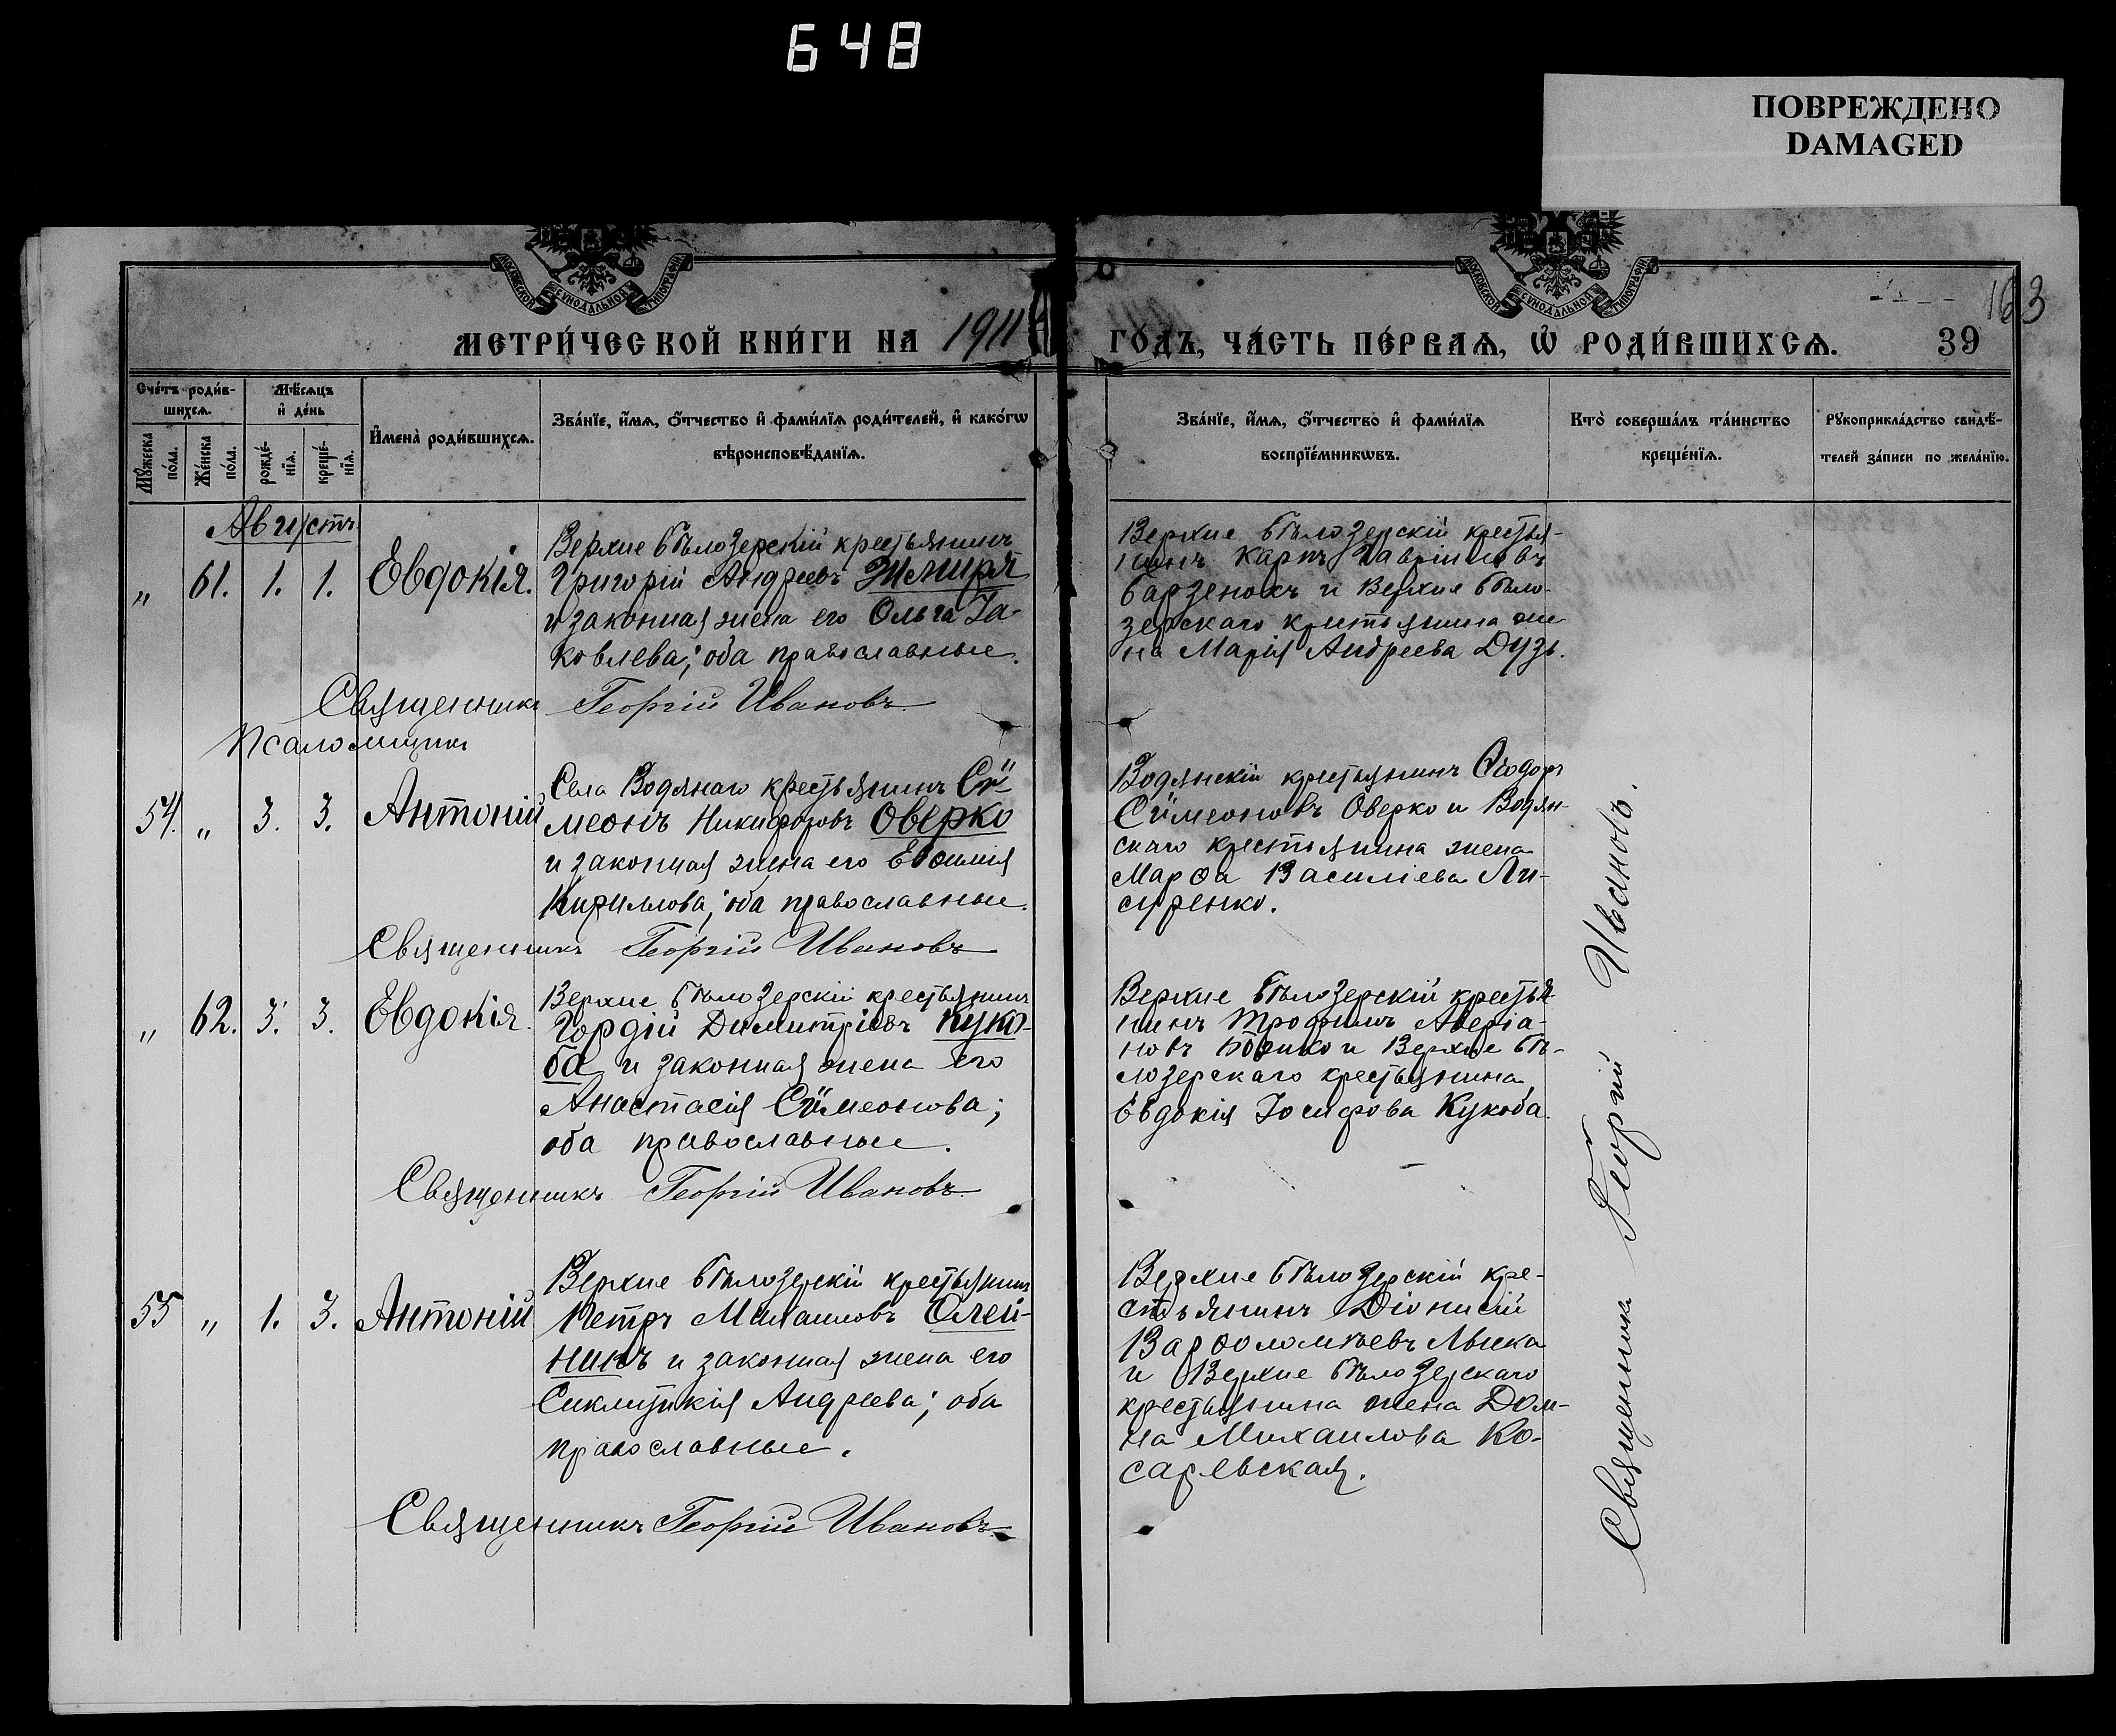 648
ПОВРЕЖДЕНО
DAMAGED
МОСКОВСКОЙ СѴНОДАЛЬНОЙ ТИПОГРАФІИ
МОСКОВСКОЙ СѴНОДАЛЬНОЙ ТИПОГРАФІИ
163
МЕТРИ́ЧЕСКОЙ КНИ́ГИ НА 1911
ГО́ДЪ, ЧА́СТЬ ПЕ́РВАѦ, Ѡ҆ РОДИ́ВШИХСѦ.
39
Сче́тъ роди́в-
шихсѧ.
Мꙋ́жеска
по́ла.
Же́нска
по́ла.
Мѣ́сѧцъ
и҆ де́нь
рожде́-
нїѧ.
креще́-
нїѧ.
И҆мена̀ роди́вшихсѧ.
Зва́нїе, и҆́мѧ, ѻ҆́тчество и҆ фами́лїѧ роди́телей, и҆ како́гѡ
вѣроисповѣ́данїѧ.
Зва́нїе, и҆́мѧ, ѻ҆́тчество и҆ фами́лїѧ
воспрїе́мникѡвъ.
Кто̀ соверша́лъ та́инство
креще́нїѧ.
Рꙋкоприкла́дство свидѣ́-
телей за́писи по жела́нїю.
Августъ
„ 61. 1. 1. Евдокія.
Верхне бѣлозерскій крестьянинъ
Григорій Андреевъ Жмиря
и законная жена его Ольга Іа-
ковлева; оба православные.
Верхне бѣлозерскій крестья-
нинъ Карпъ Гавріиловъ
и Верхне бѣло-
зерскаго крестьянина же
на Марія Андреева Дузь.
Священникъ Георгій Ивановъ
Псаломщикъ
54. „ 3. 3. Антоній
Села Водянаго крестьянинъ Сѵ-
меонъ Никифоровъ Оверко
и законная жена его Евѳимія
Кириллова; оба православные.
Водянскій крестьянинъ Ѳеодоръ
Сѵмеоновъ Оверко и Водян-
скаго крестьянина жена
Марѳа Василіева Ли-
суренко.
Священникъ Георгій Ивановъ
„ 62. 3. 3. Евдокія.
Верхне бѣлозерскій крестьянинъ
Гордій Димитріевъ Куко-
ба и законная жена его
Анастасія Сѵмеонова;
оба православные.
Верхне бѣлозерскій крестья-
нинъ Трофимъ Аверіа-
новъ Бойко и Верхне бѣ-
лозерскаго крестьянина
Евдокія Іосифова Кукоба.
Священникъ Георгій Ивановъ
55 „ 1. 3. Антоній
Верхне бѣлозерскій крестьянинъ
Петръ Михаиловъ Олей-
никъ и законная жена его
Сиклитикія Андреева; оба
православные.
Верхне бѣлозерскій кре-
стьянинъ Діонисій
Варѳоломѣевъ Лыска
и Верхне бѣлозерскаго
крестьянина жена Дом-
на Михаилова Ко-
саревская.
Священникъ Георгій Ивановъ
Священникъ Георгій Ивановъ.